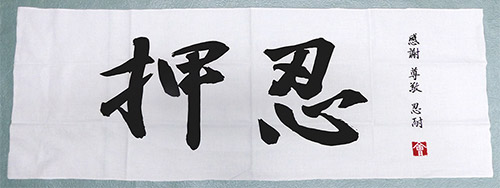 押忍
感謝 尊敬 忍耐